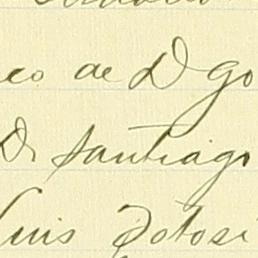 co de Dgo
Dr Santiago
Luis Potosi